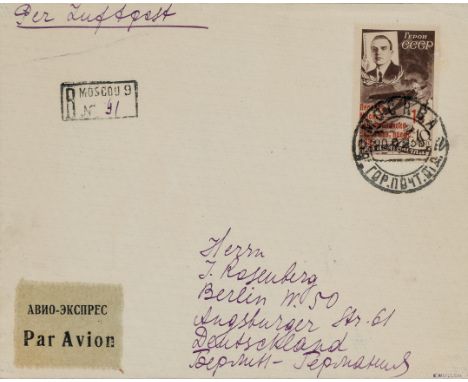 Per Luftpost
R MOSCOU 9
№ 91
ГЕРОИ
СССР
МОСКВА
ГОР.ПОЧТ.ОТД.
Herrn
I. Rosenberg
Berlin W. 50
Augsburger Str. 61
Deutschland
Берлин - Германия
АВИО-ЭКСПРЕС
Par Avion